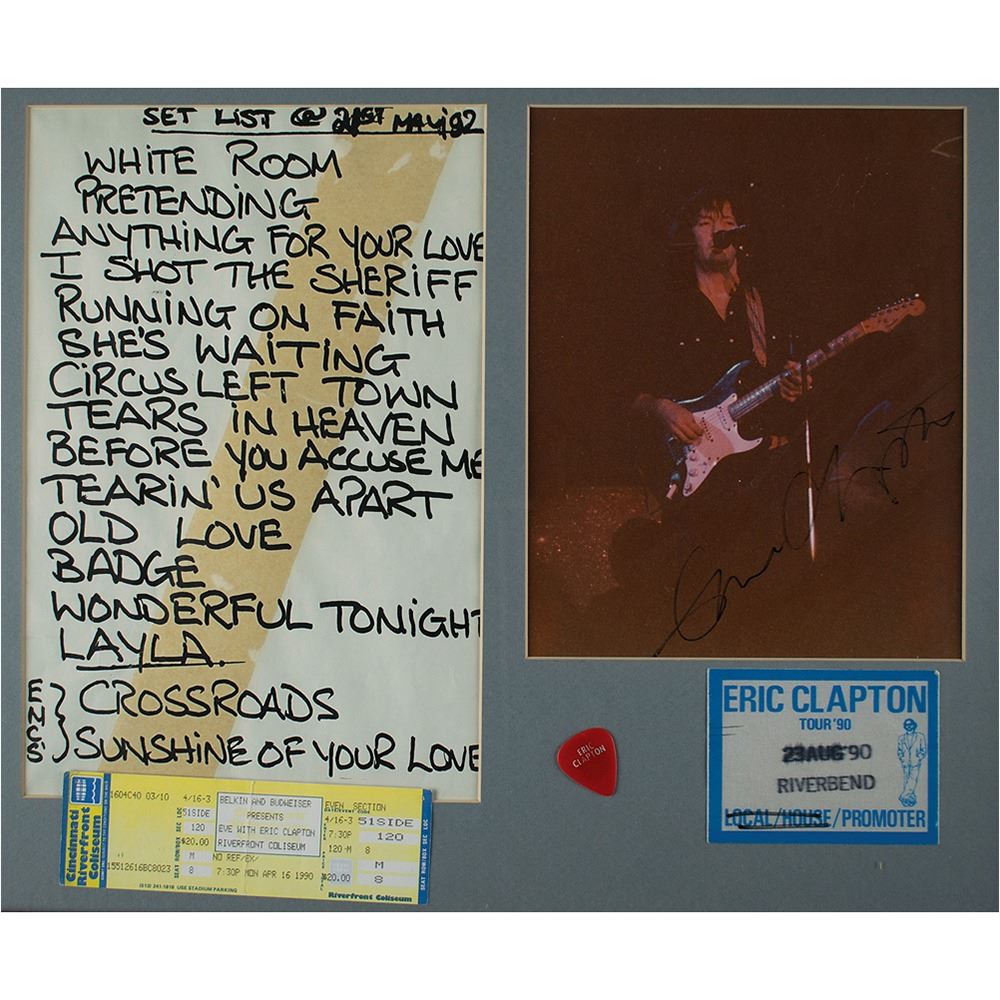 SET LIST @ 21ST MAY 92
WHITE ROOM
PRETENDING
ANYTHING FOR YOUR LOVE
I SHOT THE SHERIFF
RUNNING ON FAITH
SHE'S WAITING
CIRCUS LEFT TOWN
TEARS IN HEAVEN
BEFORE YOU ACCUSE ME
TEARIN' US APART
OLD LOVE
BADGE
WONDERFUL TONIGHT
LAYLA.
ENC'S
CROSSROADS
SUNSHINE OF YOUR LOVE
ERIC
CLAPTON
ERIC CLAPTON
TOUR '90
23AUG'90
RIVERBEND
LOCAL/HOUSE/PROMOTER
Cincinnati
Riverfront
Coliseum
1604C40 03/10
15512616BC8023
4/16-3
51SIDE
120
$20.00
M
8
SEAT ROW/BOX SEC LOC
BELKIN AND BUDWEISER
PRESENTS
EVE WITH ERIC CLAPTON
RIVERFRONT COLISEUM
NO REF/EX/
7:30P MON APR 16 1990
(513) 241-1818 USE STADIUM PARKING
EVEN SECTION
4/16-3 51SIDE
7:30P 120
120-M 8
M
$20.00 8
Riverfront Coliseum
SEAT ROW/BOX SEC LOC